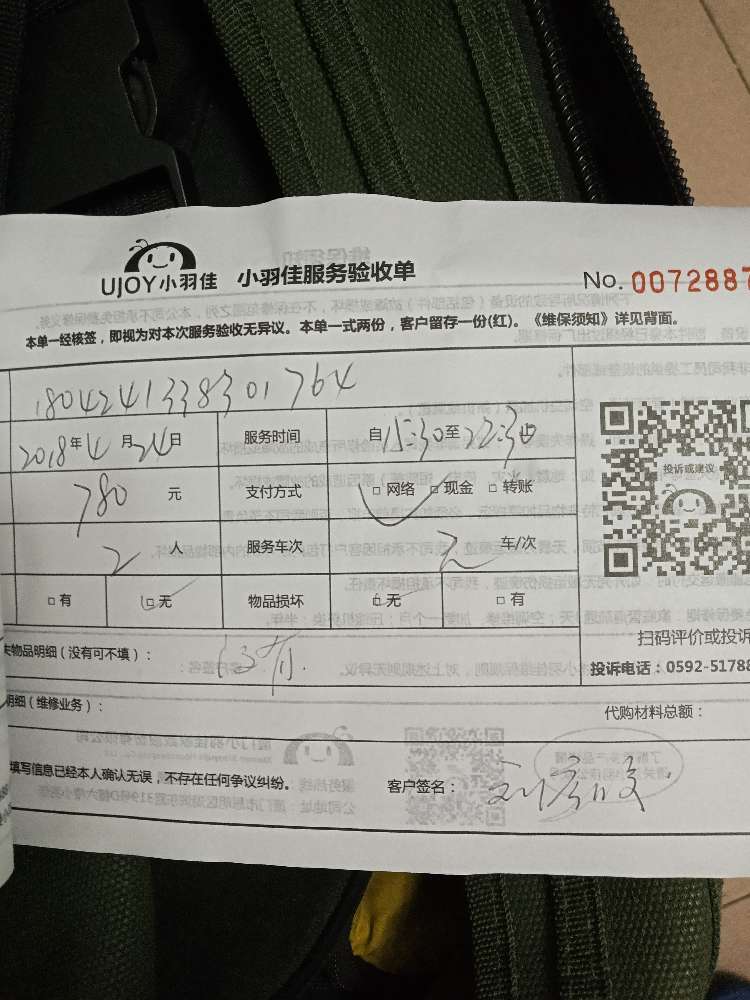 UJOY小羽佳 小羽佳服务验收单 No. 0072887
本单一经核签，即视为对本次服务验收无异议。本单一式两份，客户留存一份(红)。《维保须知》详见背面。
1804241338301764
2018年4月24日 服务时间 自15:30至22:30
780元 支付方式 □网络 □现金 □转账
投诉或建议
2人 服务车次 2车/次
□有 □无 物品损坏 □无 □有
扫码评价或投诉
失物品明细（没有可不填）：
投诉电话：0592-51788
明细（维修业务）： 代购材料总额：
填写信息已经本人确认无误，不存在任何争议纠纷。 客户签名：